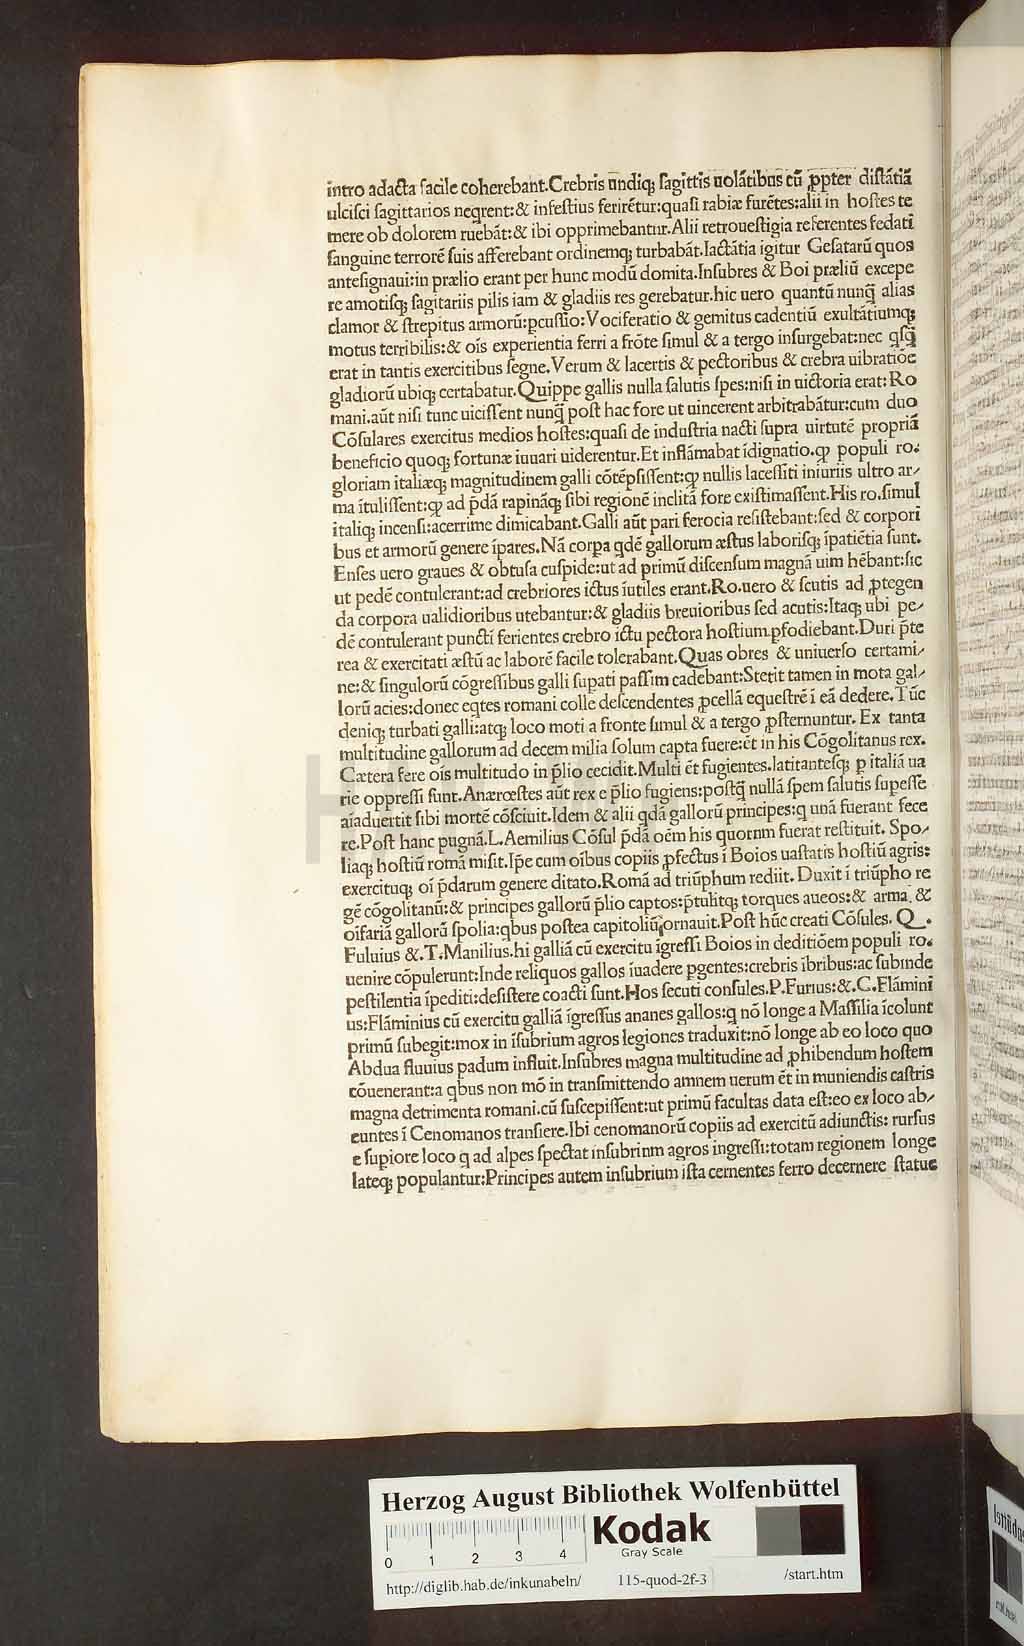 intro adacta facile coherebant.Crebris undiqꝫ sagittis uolātibus cū ꝓpter distātiā
ulcisci sagittarios neqrent:& infestius ferirētur:quasi rabiæ furētes:alii in hostes te
mere ob dolorem ruebāt:& ibi opprimebantur.Alii retrouestigia referentes fedati
sanguine terrorē suis afferebant ordinemqꝫ turbabāt.Iactātia igitur Gesatarū quos
antesignaui:in prælio erant per hunc modū domita.Insubres & Boi præliū excepe
re amotisqꝫ sagitariis pilis iam & gladiis res gerebatur.hic uero quantū nunq̄ alias
clamor & strepitus armorū:ꝑcussio:Vociferatio & gemitus cadentiū exultātiumqꝫ
motus terribilis:& oīs experientia ferri a frōte simul & a tergo insurgebat:nec qsq̄
erat in tantis exercitibus segne.Verum & lacertis & pectoribus & crebra uibratiōe
gladiorū ubiqꝫ certabatur.Quippe gallis nulla salutis spes:nisi in uictoria erat:Ro
mani.aūt nisi tunc uicissent nunq̄ post hac fore ut uincerent arbitrabātur:cum duo
Cōsulares exercitus medios hostes:quasi de industria nacti supra uirtutē propriā
beneficio quoqꝫ fortunæ iuuari uiderentur.Et inflāmabat īdignatio.ꝙ populi ro.
gloriam italiæqꝫ magnitudinem galli cōtēpsissent:ꝙ nullis lacessiti iniuriis ultro ar-
ma ītulissent:ꝙ ad p̄dā rapināqꝫ sibi regionē inclitā fore existimassent.His ro.simul
italiqꝫ incensi:acerrime dimicabant.Galli aūt pari ferocia resistebant:sed & corpori
bus et armorū genere īpares.Nā corpa qdē gallorum æstus laborisqꝫ īpatiētia sunt.
Enses uero graues & obtusa cuspide:ut ad primū discensum magnā uim hēbant:sic
ut pedē contulerant:ad crebriores ictus īutiles erant.Ro.uero & scutis ad ꝓtegen
da corpora ualidioribus utebantur:& gladiis breuioribus sed acutis:Itaqꝫ ubi pe-
dē contulerant punctī ferientes crebro ictu pectora hostium ꝑfodiebant.Duri p̄te
rea & exercitati æstū ac laborē facile tolerabant.Quas obres & uniuerso certami-
ne:& singulorū cōgressibus galli supati passim cadebant:Stetit tamen in mota gal-
lorū acies:donec eqtes romani colle descendentes ꝓcellā equestrē ī eā dedere.Tūc
deniqꝫ turbati galli:atqꝫ loco moti a fronte simul & a tergo ꝓsternuntur. Ex tanta
multitudine gallorum ad decem milia solum capta fuere:ēt in his Cōgolitanus rex.
Cætera fere oīs multitudo in p̄lio cecidit.Multi ēt fugientes.latitantesqꝫ ꝑ italiā ua
rie oppressi sunt.Anærœstes aūt rex e p̄lio fugiens:postq̄ nullā spem salutis supesse
aīaduertit sibi mortē cōsciuit.Idem & alii qdā gallorū principes:q unā fuerant fece
re.Post hanc pugnā.L.Aemilius Cōsul p̄dā oēm his quorum fuerat restituit. Spo-
liaqꝫ hostiū romā misit.Ip̄e cum oībus copiis ꝓfectus ī Boios uastatis hostiū agris:
exercituqꝫ oī p̄darum genere ditato.Romā ad triūphum rediit. Duxit ī triūpho re
gē cōgolitanū:& principes gallorū p̄lio captos:p̄tulitqꝫ torques aueos:& arma.&
oīfariā gallorū spolia:qbus postea capitoliū ornauit.Post hūc creati Cōsules. Q.
Fuluius &.T.Manilius.hi galliā cū exercitu īgressi Boios in deditiōem populi ro.
uenire cōpulerunt:Inde reliquos gallos īuadere ꝑgentes:crebris ībribus:ac subinde
pestilentia īpediti:desistere coacti sunt.Hos secuti consules.P.Furius:&.C.Flāmini
us:Flāminius cū exercitu galliā īgressus ananes gallos:q nō longe a Massilia īcolunt
primū subegit:mox in īsubrium agros legiones traduxit:nō longe ab eo loco quo
Abdua fluuius padum influit.Insubres magna multitudine ad ꝓhibendum hostem
cōuenerant:a qbus non mō in transmittendo amnem uerum ēt in muniendis castris
magna detrimenta romani.cū suscepissent:ut primū facultas data est:eo ex loco ab-
euntes ī Cenomanos transiere.Ibi cenomanorū copiis ad exercitū adiunctis: rursus
e supiore loco q ad alpes spectat insubrium agros ingressi:totam regionem longe
lateqꝫ populantur:Principes autem insubrium ista cernentes ferro decernere statue
Herzog August Bibliothek Wolfenbüttel
Kodak
Gray Scale
0 1 2 3 4
http://diglib.hab.de/inkunabeln/ 115-quod-2f-3 /start.htm